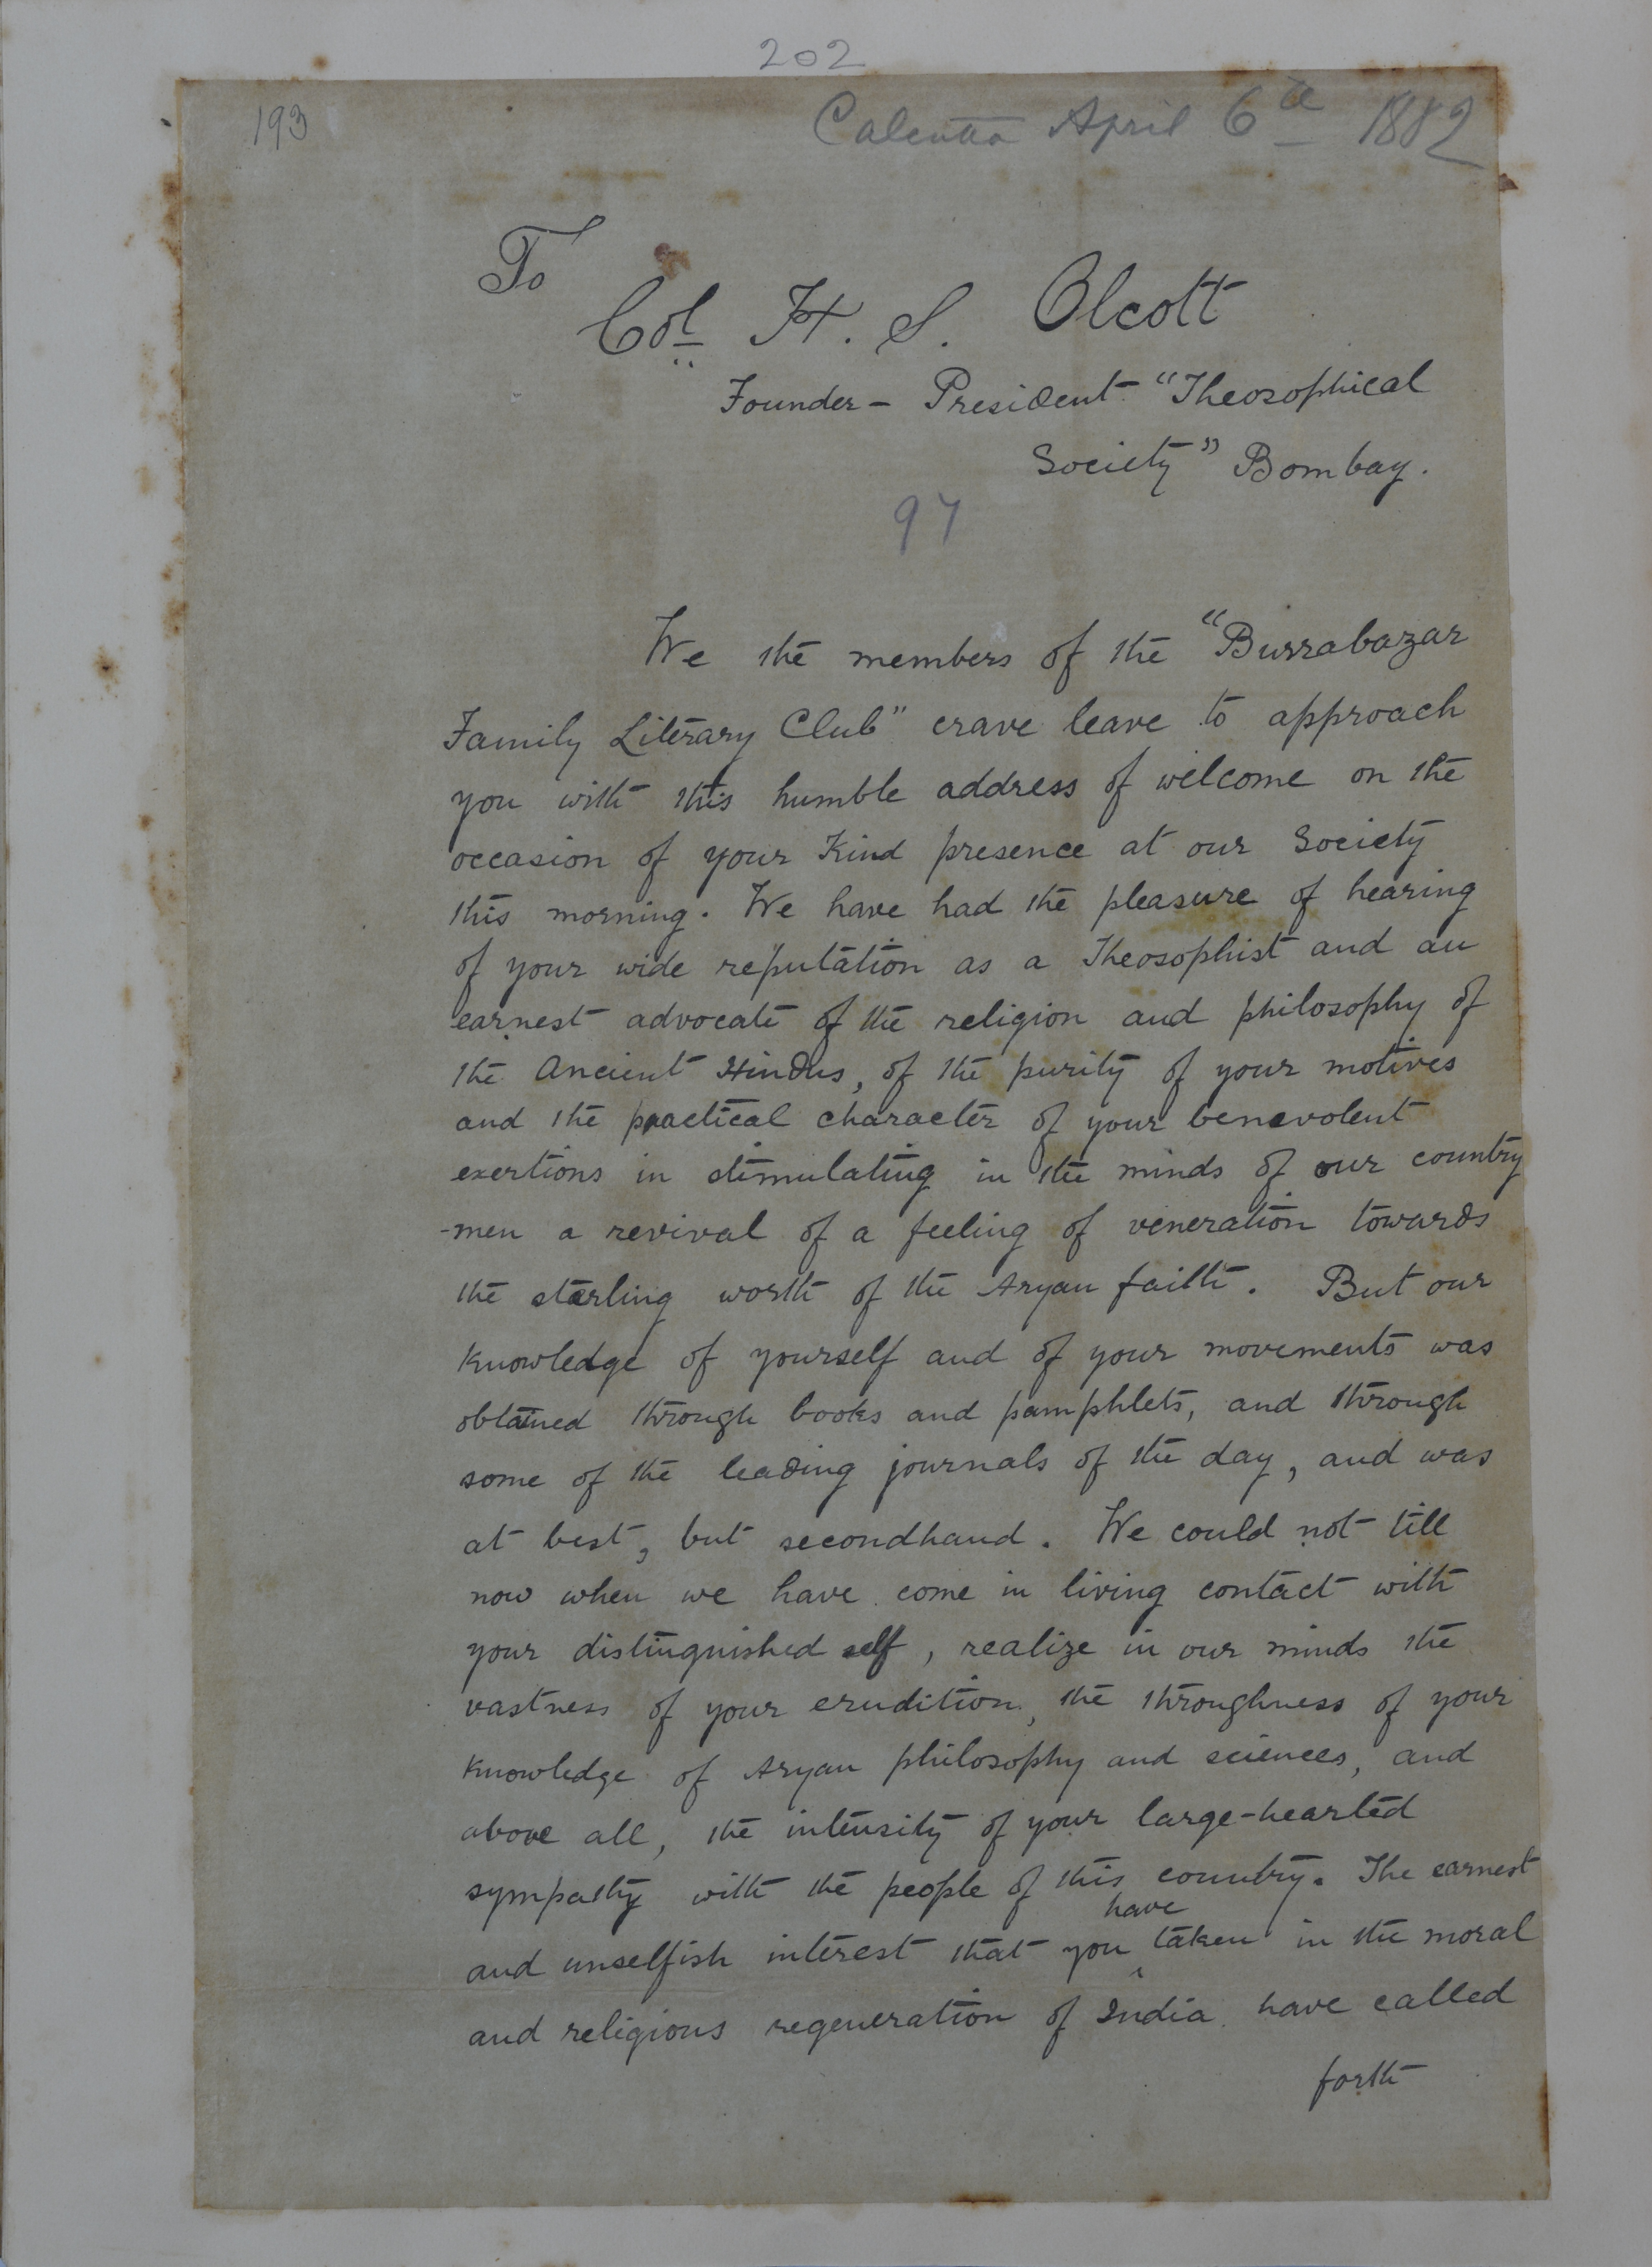 202
193
Calcutta April 6th 1882
To
Col. H. S. Olcott
Founder – President "Theosophical
Society" Bombay.
97
We the members of the "Burrabazar
Family Literary Club" crave leave to approach
you with this humble address of welcome on the
occasion of your Kind presence at our Society
this morning. We have had the pleasure of hearing
of your wide reputation as a Theosophist and an
earnest advocate of the religion and philosophy of
the Ancient Hindus, of the purity of your motives
and the practical character of your benevolent
exertions in stimulating in the minds of our country
-men a revival of a feeling of veneration towards
the sterling worth of the Aryan faith. But our
Knowledge of yourself and of your movements was
obtained through books and pamphlets, and through
some of the leading journals of the day, and was
at best, but secondhand. We could not till
now when we have come in living contact with
your distinguished self, realize in our minds the
vastness of your erudition, the throughness of your
Knowledge of Aryan philosophy and sciences, and
above all, the intensity of your large-hearted
sympathy with the people of this country. The earnest
have
and unselfish interest that you taken in the moral
and religious regeneration of India have called
forth